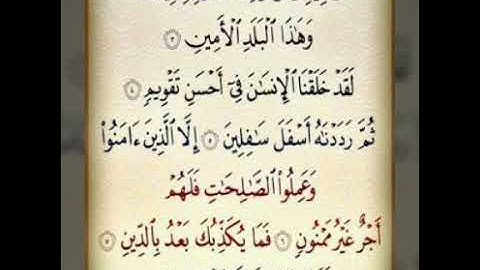 وَهَٰذَا ٱلْبَلَدِ ٱلْأَمِينِ ٣
لَقَدْ خَلَقْنَا ٱلْإِنسَٰنَ فِىٓ أَحْسَنِ تَقْوِيمٍ ٤
ثُمَّ رَدَدْنَٰهُ أَسْفَلَ سَٰفِلِينَ ٥ إِلَّا ٱلَّذِينَ ءَامَنُوا۟
وَعَمِلُوا۟ ٱلصَّٰلِحَٰتِ فَلَهُمْ
أَجْرٌ غَيْرُ مَمْنُونٍ ٦ فَمَا يُكَذِّبُكَ بَعْدُ بِٱلدِّينِ ٧